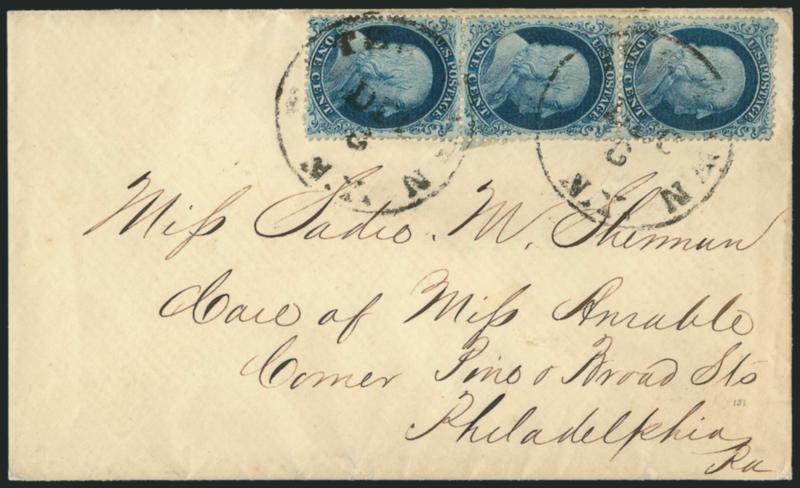 U.S. POSTAGE ONE CENT U.S. POSTAGE ONE CENT U.S. POSTAGE ONE CENT
DEC
Miss Sadie M. Sherman
Care of Miss Amable
Corner Pine & Broad Sts
151
Philadelphia
Pa